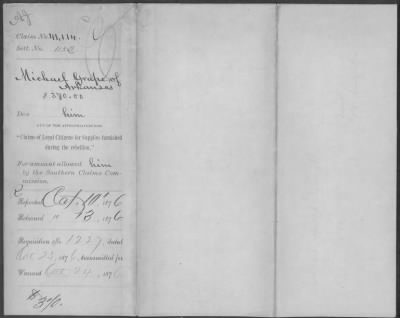 Claim No. 41,114.
Sett. No.
Michael Grape, of
Arkansas
$ 380.00
Due him
OUT OF THE APPROPRIATION FOR
"Claims of Loyal Citizens for Supplies furnished
during the rebellion."
For amount allowed him
by the Southern Claims Com-
mission.
Reported Oct. 10, 1876
Returned " 13, 1876
Requisition No. 1227, dated
Oct 23, 1876, transmitted for
Warrant Oct. 24, 1876